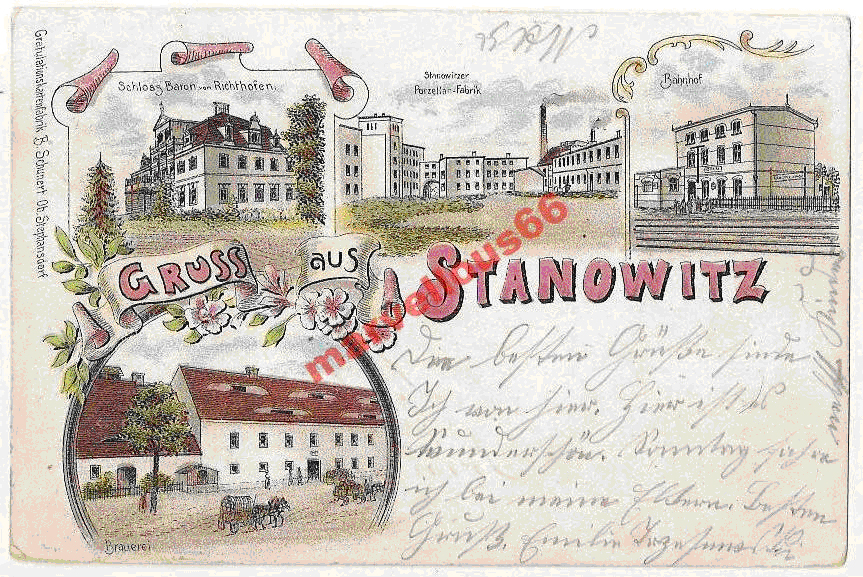 Gratulationskartenfabrik B. Schunert Ob. Stephansdorf
Schloss Baron von Richthofen.
Stanowitzer
Porzellan-Fabrik
Bahnhof
GRUSS aus STANOWITZ
marvellous66
Brauerei
Die besten Grüße sende
Ich von hier. Hier ist es
Wunderschön. Sonntag fahre
ich bei meine Eltern. Besten
Gruß. Emilie